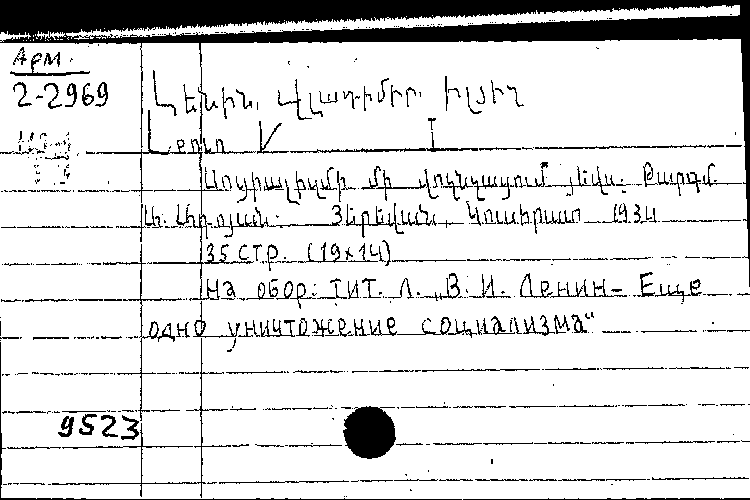 Арм.
2-2969
Լենին, Վլադիմիր Իլյիչ
Սոցիալիզմի մի վոչնչացում յեվս: Թարգմ.
Յերեվան, Կուսհրատ 1934
35 стр. (19x14)
На обор: тит. л. „В. И. Ленин - Еще
одно уничтожение социализма“
9523